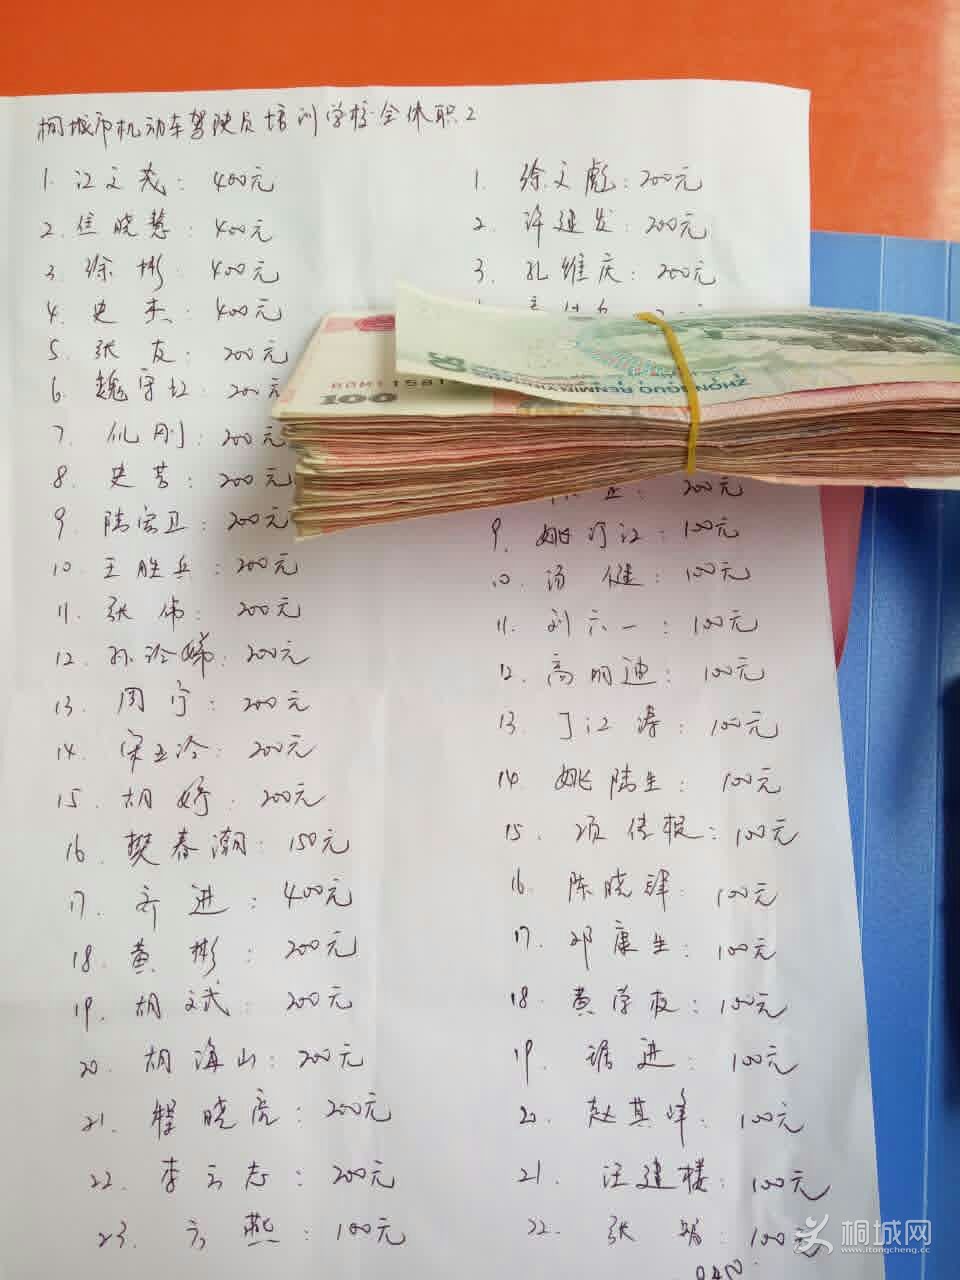 桐城市机动车驾驶员培训学校全体职2
1. 江文茂: 400元
2. 焦晓慧: 400元
3. 徐彬: 400元
4. 史杰: 400元
5. 张友: 200元
6. 魏守红: 200元
7. 仇刚: 200元
8. 史芸: 200元
9. 陆宏卫: 200元
10. 王胜兵: 200元
11. 张伟: 200元
12. 200元
13. 周宁: 200元
14. 宋玉冷: 200元
15. 胡婷: 200元
16. 樊春潮: 150元
17. 齐进: 400元
18. 黄彬: 200元
19. 胡文武: 200元
20. 胡海山: 200元
21. 程晓亮: 200元
22. 李云志: 200元
23. 方燕: 100元
1. 徐文彪: 200元
2. 许延发: 200元
3. 孔维庆: 200元
200元
9. 姚汀江: 100元
10. 汤健: 100元
11. 刘六一: 100元
12. 高明迪: 100元
13. 丁江涛: 100元
14. 姚陆生: 100元
15. 项传根: 100元
16. 陈晓: 100元
17. 邓康生: 100元
18. 黄学权: 100元
19. 琚进: 100元
20. 赵其峰: 100元
21. 汪建楼: 100元
22. 张: 100元
100
ZHONGGUO RENMIN
桐城网
www.itongcheng.cc